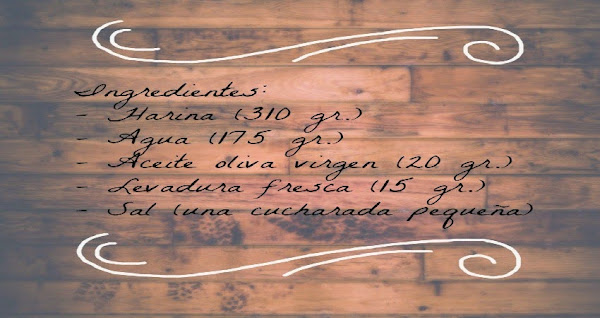 Ingredientes:
- Harina (310 gr.)
- Agua (175 gr.)
- Aceite oliva virgen (20 gr.)
- Levadura fresca (15 gr.)
- Sal (una cucharada pequeña)